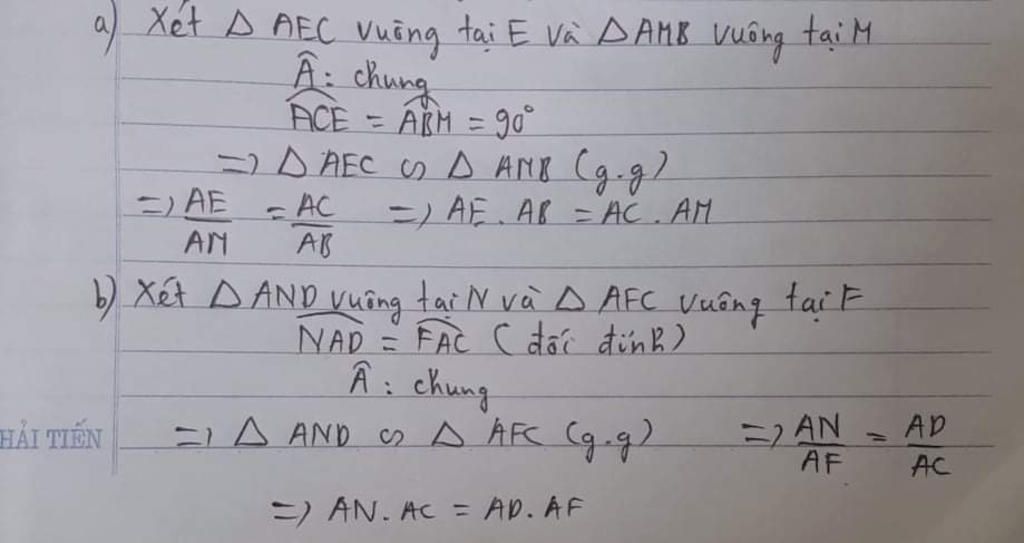 a) Xét △ AEC vuông tại E và △ AMB vuông tại M
Â: chung
ACE = ABM = 90°
=> △ AEC ∽ △ AMB (g.g)
=> AE/AM = AC/AB => AE . AB = AC . AM
b) Xét △ AND vuông tại N và △ AFC vuông tại F
NAD = FAC (đối đỉnh)
Â: chung
HẢI TIẾN => △ AND ∽ △ AFC (g.g) => AN/AF = AD/AC
=> AN. AC = AD. AF